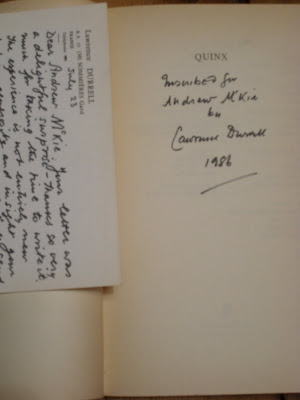 Lawrence
DURRELL
30250 SOMMIÈRES Gard
FRANCE
July 23
Dear Andrew McKie. Your letter was
a delightful surprise. Thanks so very
much for taking the time to write it.
The experience is not entirely new
and insight your
QUINX
Inscribed for
Andrew McKie
by
Lawrence Durrell
1986